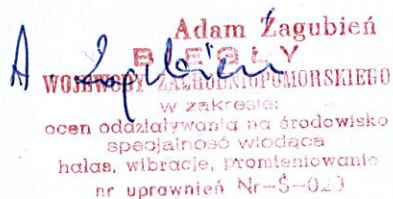 Adam Żagubień
BIEGŁY
A. Żagubień
WOJEWODY ZACHODNIOPOMORSKIEGO
w zakresie:
ocen oddziaływania na środowisko
specjalność wiodąca
hałas, wibracje, promieniowanie
nr uprawnień Nr-Ś-020